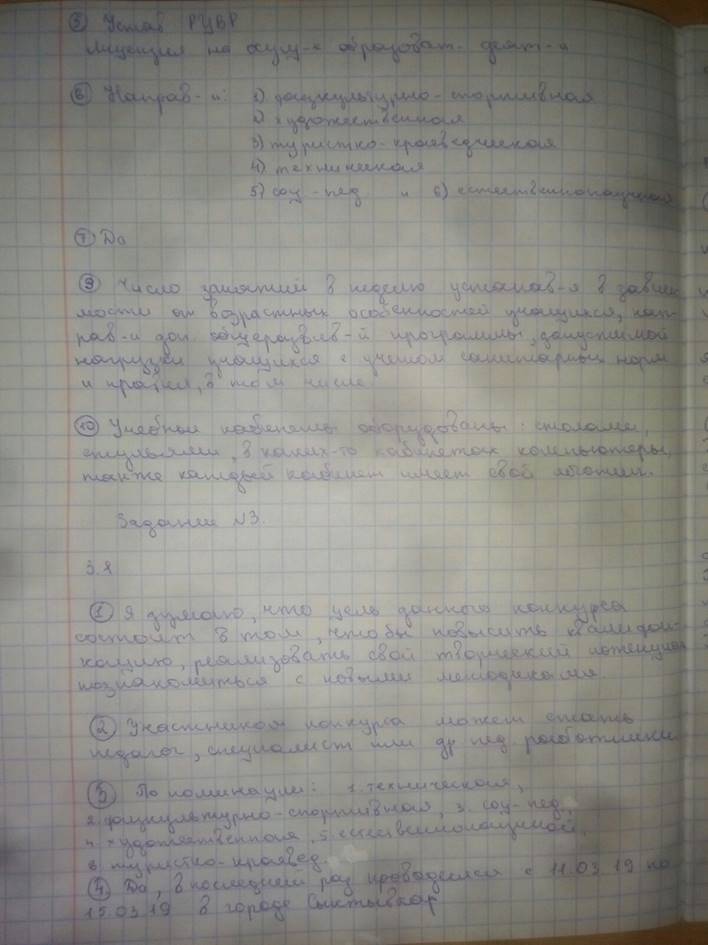 ⑤ Устав РЦВР
Лицензия на осущ-е образоват. деят-и
⑥ Направ-и: 1) физкультурно-спортивная
2) художественная
3) туристко-краеведческая
4) техническая
5) соц-пед и 6) естественнонаучная
⑦ Да
⑨ Число занятий в неделю устанав-я в завис
мости от возрастных особенностей учащихся, нап-
рав-и доп. общеразвив-й программы, допустимой
нагрузки учащихся с учетом санитарных норм
и правил, в том числе.
⑩ Учебные кабинеты оборудованы: столами,
стульями, в каких-то кабинетах компьютеры,
также каждый кабинет имеет свой
Задание №3.
3.1
① Я думаю, что цель данного конкурса
состоит в том, чтобы повысить квалифи-
кацию, реализовать свой творческий потенциал
познакомиться с новыми методиками.
② Участником конкурса может стать
педагог, специалист или др пед работники
③ По номинации: 1. техническая,
2. физкультурно-спортивная, 3. соц-пед,
4. художественная, 5. естественнонаучной,
6. туристко-краевед.
④ Да, в последней раз проводился с 11.03.19 по
15.03.19 в городе Сыктывкар